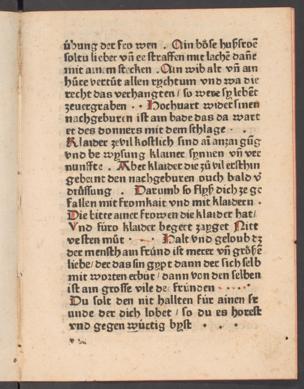 übung der fro wen . Ain böse husfroẽ
soltu lieber vñ ee straffen mit lachẽ dañe
mit ainem stecken . Ain wib alt vñ am
hüre vertüt allen rychtum vnd wa die
recht das verhangten / so were sy lebẽt
zeuergraben . Hochuart wider sinen
nachgeburen ist am bade das da wart
et des donners mit dem schlage .
Klaider ze vil kostlich sind aĩ anzaigũg
vnd be wysung klainer synnen vñ ver
nunffte . Aber klaider die zũ vil er schin
gebent den nachgeburen ouch bald v̈
drüssung . Darumb so flyß dich ze ge
fallen mit fromkait vnd mit klaidern .
Die bitte ainer frowen die klaider hat /
Vnd füro klaider begert zayget Nitt
vesten müt . Halt vnd geloub dz
der mensch am fründ ist merer vñ größẽ
liebe / der das sin gypt dann der sich selb
mit worten erbut / dann von den selben
ist am grosse vile der fründen
Du solt den nit hallten für ainen fr
unde der dich lobet / so du es horest
vnd gegen würtig byst